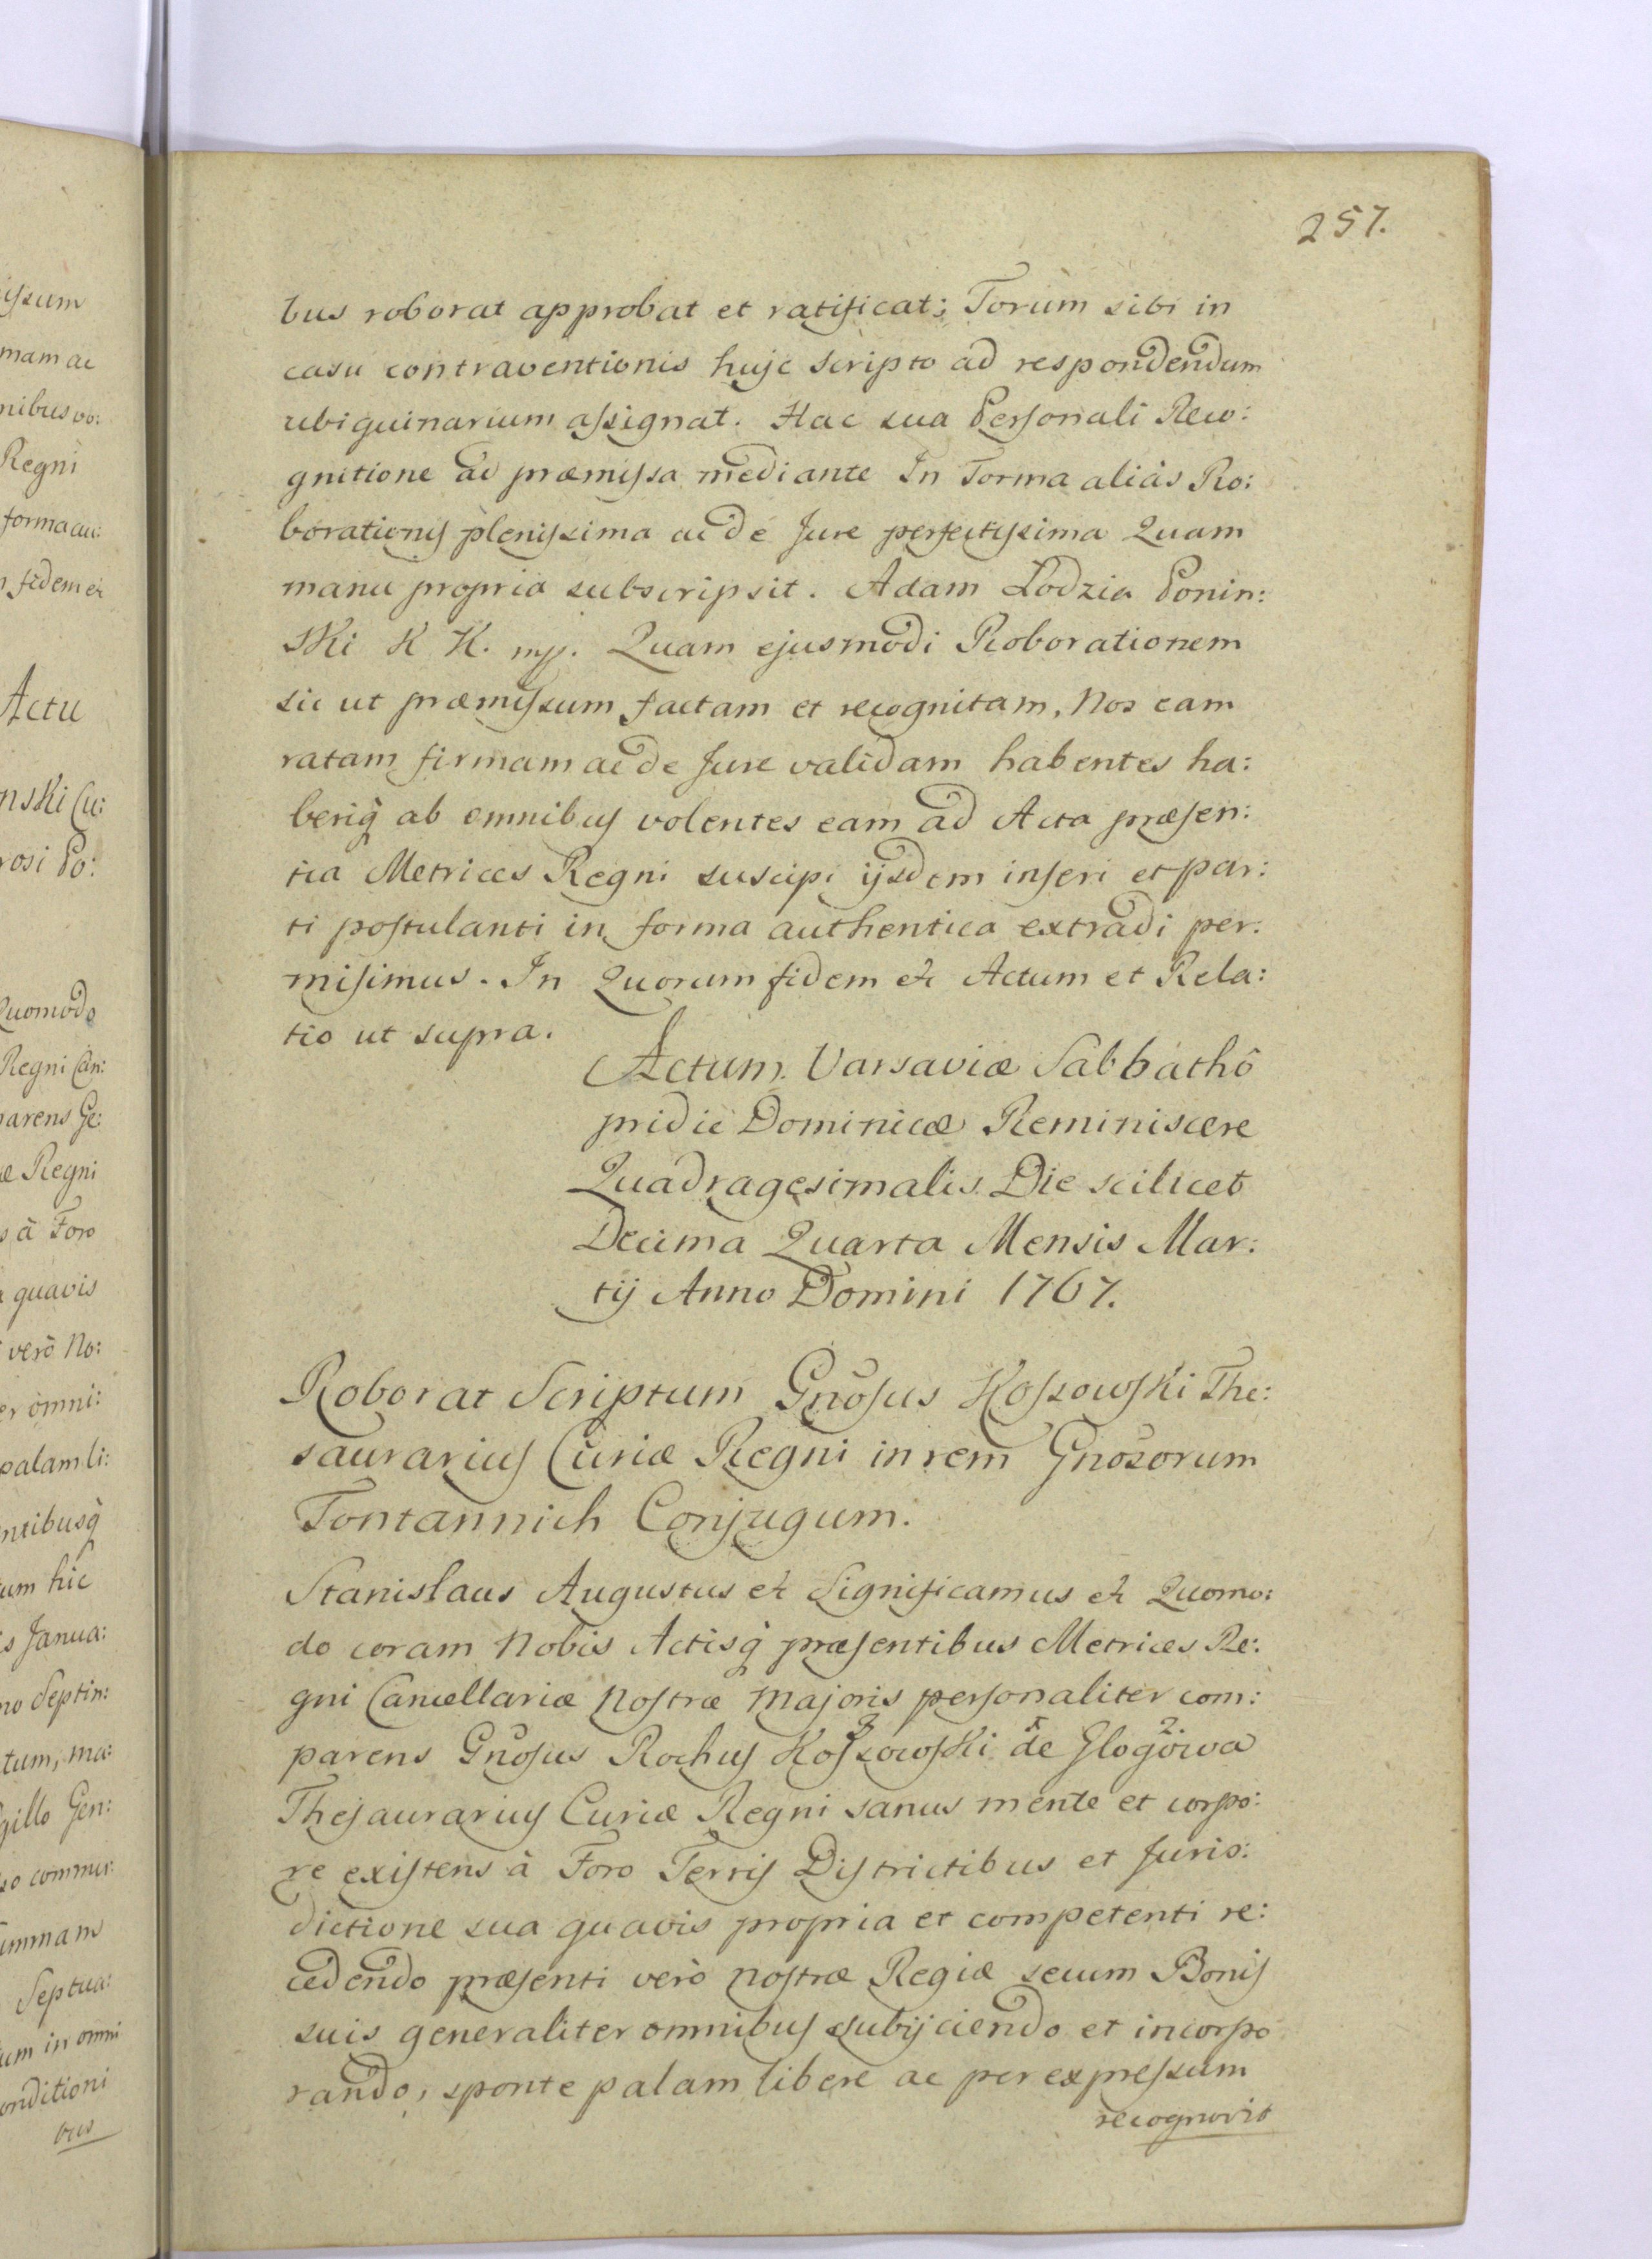 257.
bus roborat approbat et ratificat; Forum sibi in
casu contraventionis huic scripto ad respondendum
ubiquinarium assignat. Hac sua Personali Reco:
gnitione ad præmissa mediante In Forma aliàs Ro:
borationis plenissima ac de Jure perfectissima Quam
manu propria subscripsit. Adam Lodzia Ponin:
ski K K. mp. Quam ejusmodi Roborationem
sic ut præmissum factam et recognitam, Nos eam
ratam firmam ac de Jure validam habentes ha:
beriq̀ ab omnibus volentes eam ad Acta præsen:
tia Metrices Regni suscipi ijsdem inseri et par:
ti postulanti in forma authentica extradi per:
misimus. In Quorum fidem etc Actum et Rela:
tio ut supra.
Actum Varsaviæ Sabbathô
pridie Dominicæ Reminiscere
Quadragesimalis Die scilicet
Decima Quarta Mensis Mar:
tij Anno Domini 1767.
Roborat Scriptum Gnosus Kossowski The:
saurarius Curiæ Regni in rem Gnosorum
Fontannich Conjugum.
Stanislaus Augustus etc Significamus etc Quomo:
do coram Nobis Actisq̀ præsentibus Metrices Re:
gni Cancellariæ Nostræ Majoris personaliter com:
parens Gnosus Rochus Kossowski de Glogowa
Thesaurarius Curiæ Regni sanus mente et corpo:
re existens à Foro Terris Districtibus et Juris:
dictione sua quavis propria et competenti re:
cedendo præsenti verò nostræ Regiæ secum Bonis
suis generaliter omnibus subijciendo et incorpo
rando, sponte palam libere ac per expressum
recognovit